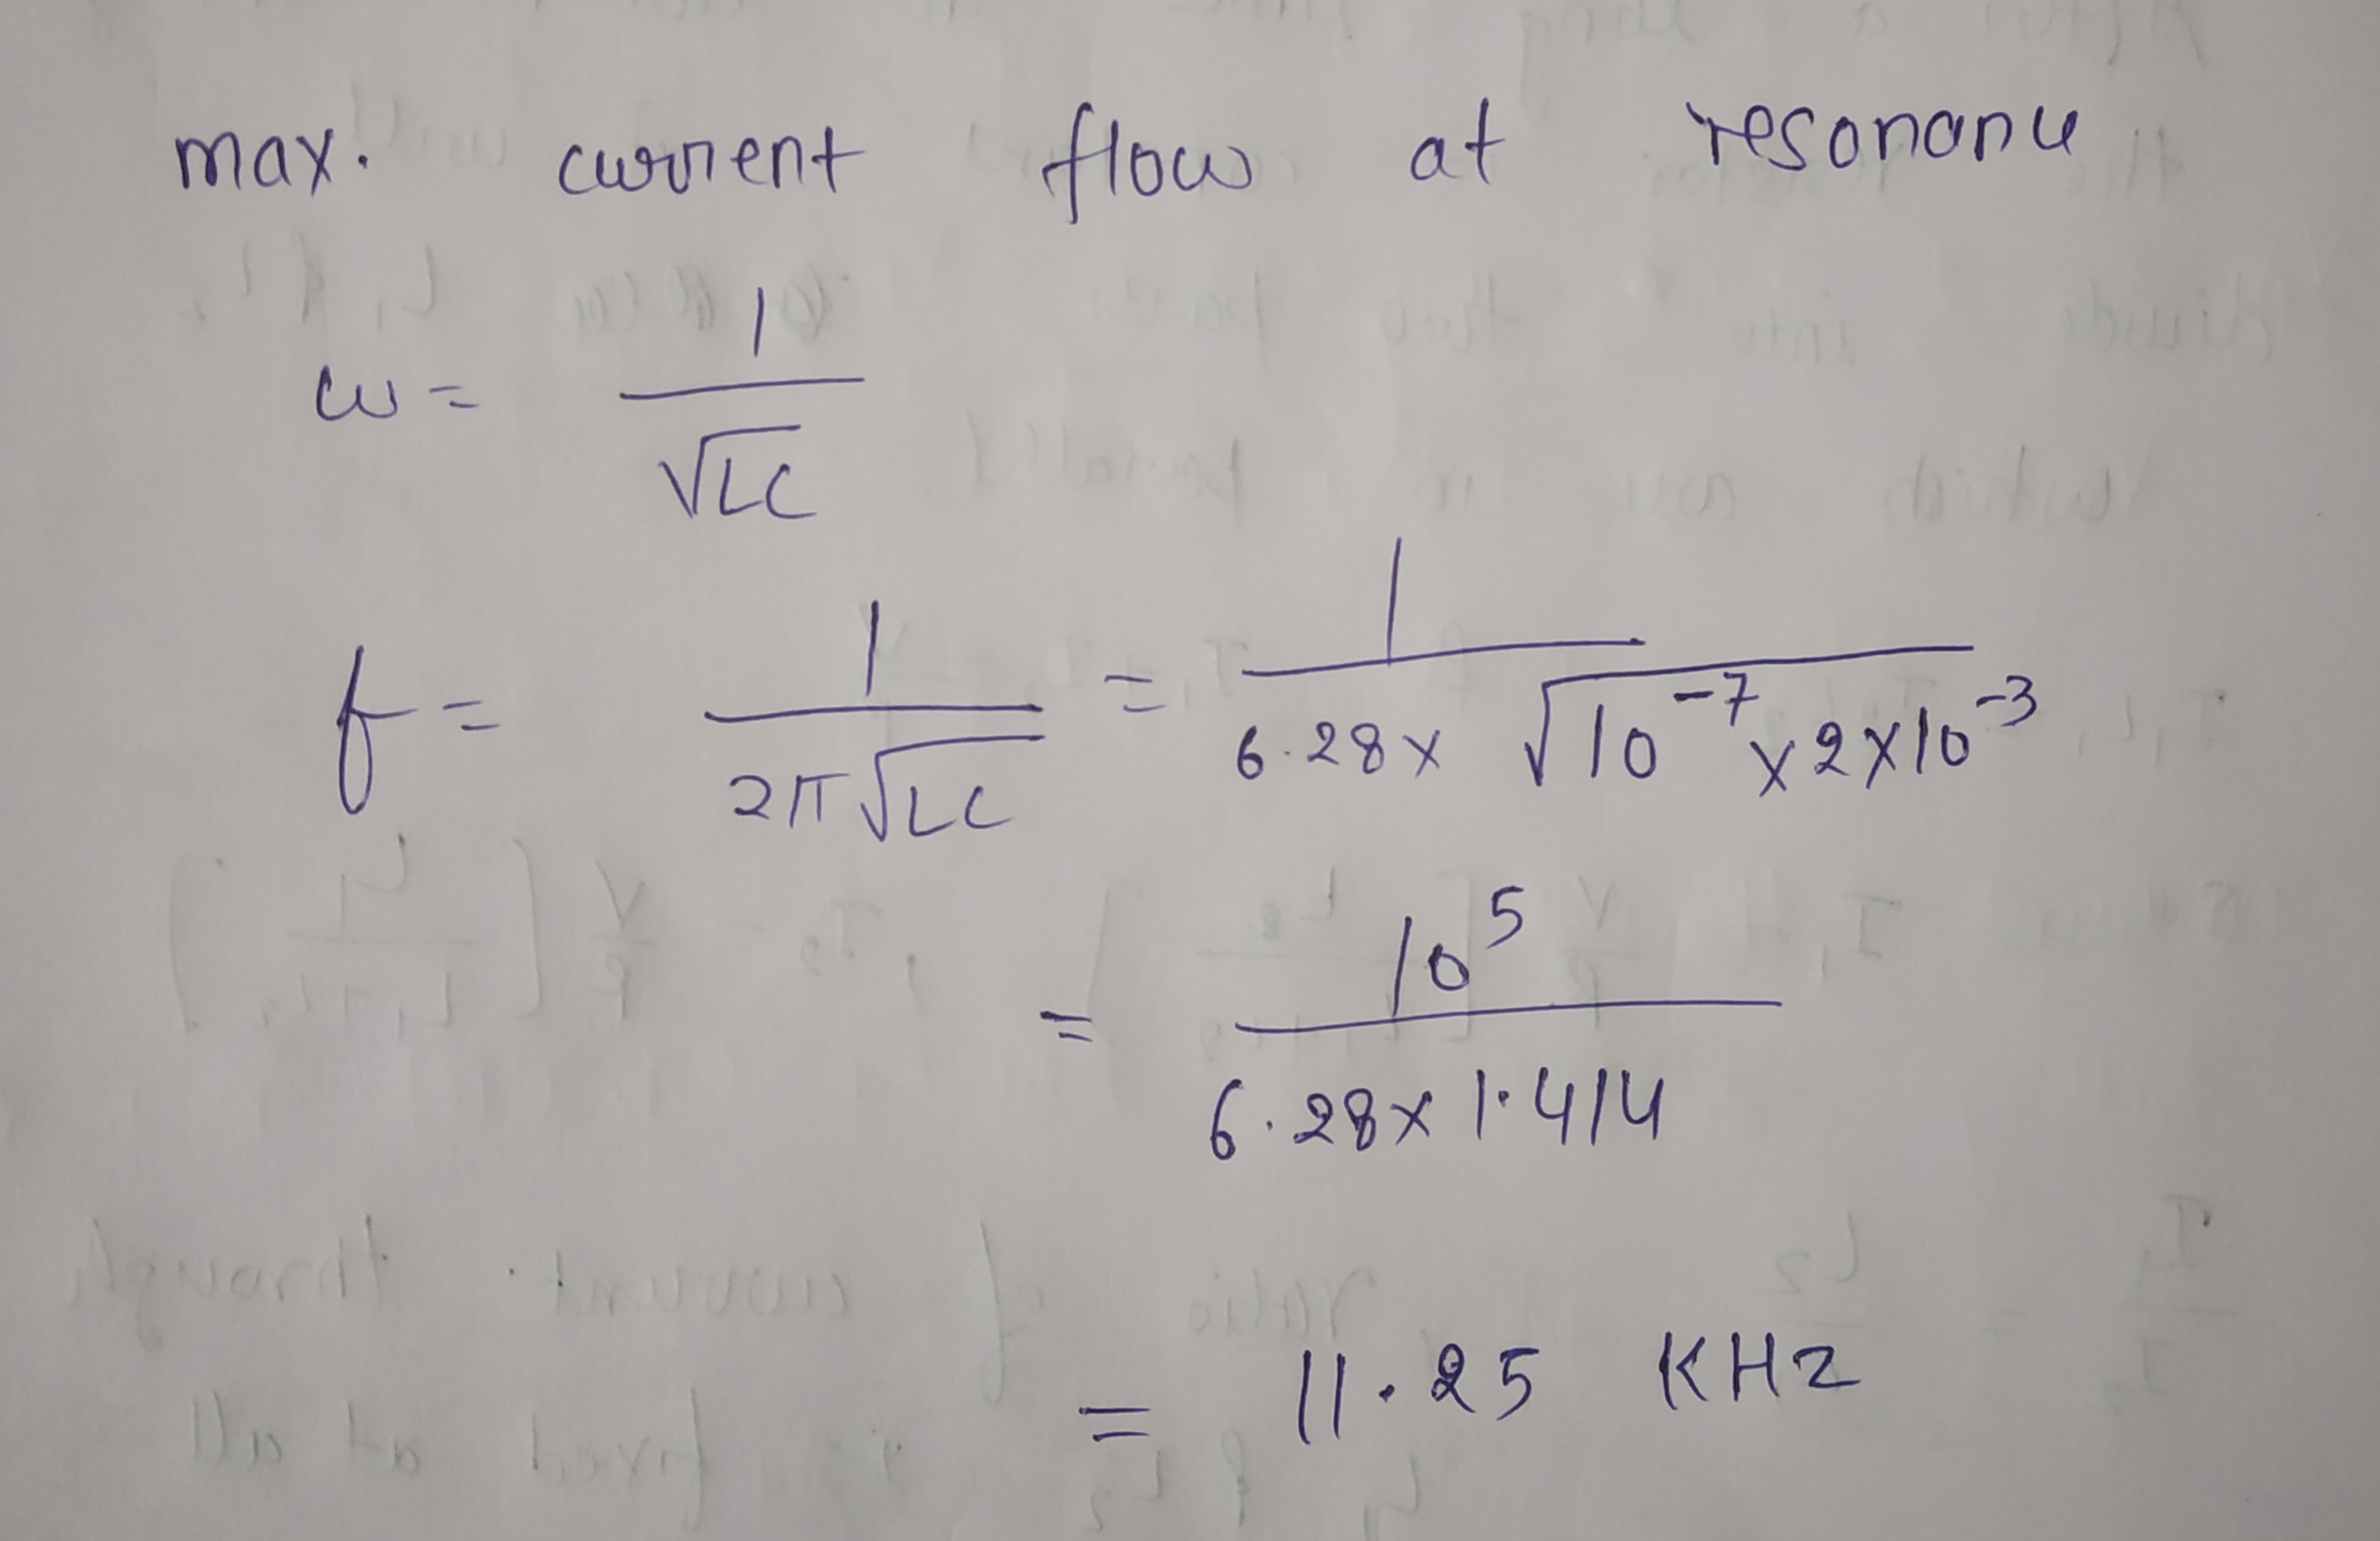 max. current flow at resonance
ω = 1/√LC
f = 1/2π√LC = 1/6.28x √10^-7 x 2x10^-3
= 10^5/6.28x1.414
= 11.25 KHz